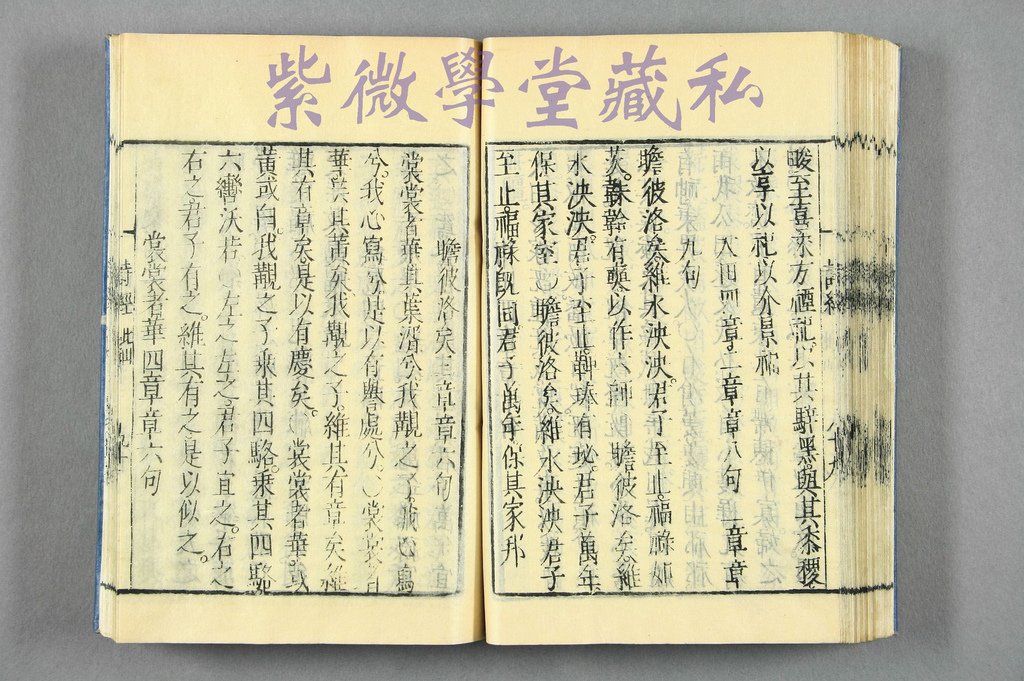 紫微學堂藏私
畯至喜來方禋祀以其騂黑與其黍稷
以享以祀以介景福
大田四章二章章八句二章章
九句
瞻彼洛矣維水泱泱君子至止福祿如
茨韎韐有奭以作六師○瞻彼洛矣維
水泱泱君子至止鞞琫有珌君子萬年
保其家室○瞻彼洛矣維水泱泱君子
至止福祿既同君子萬年保其家邦
瞻彼洛矣三章章六句
裳裳者華其葉湑兮我覯之子我心寫
兮我心寫兮是以有譽處兮○裳裳者
華芸其黃矣我覯之子維其有章矣維
其有章矣是以有慶矣○裳裳者華或
黃或白我覯之子乘其四駱乘其四駱
六轡沃若○左之左之君子宜之右之
右之君子有之維其有之是以似之
裳裳者華四章章六句
詩經